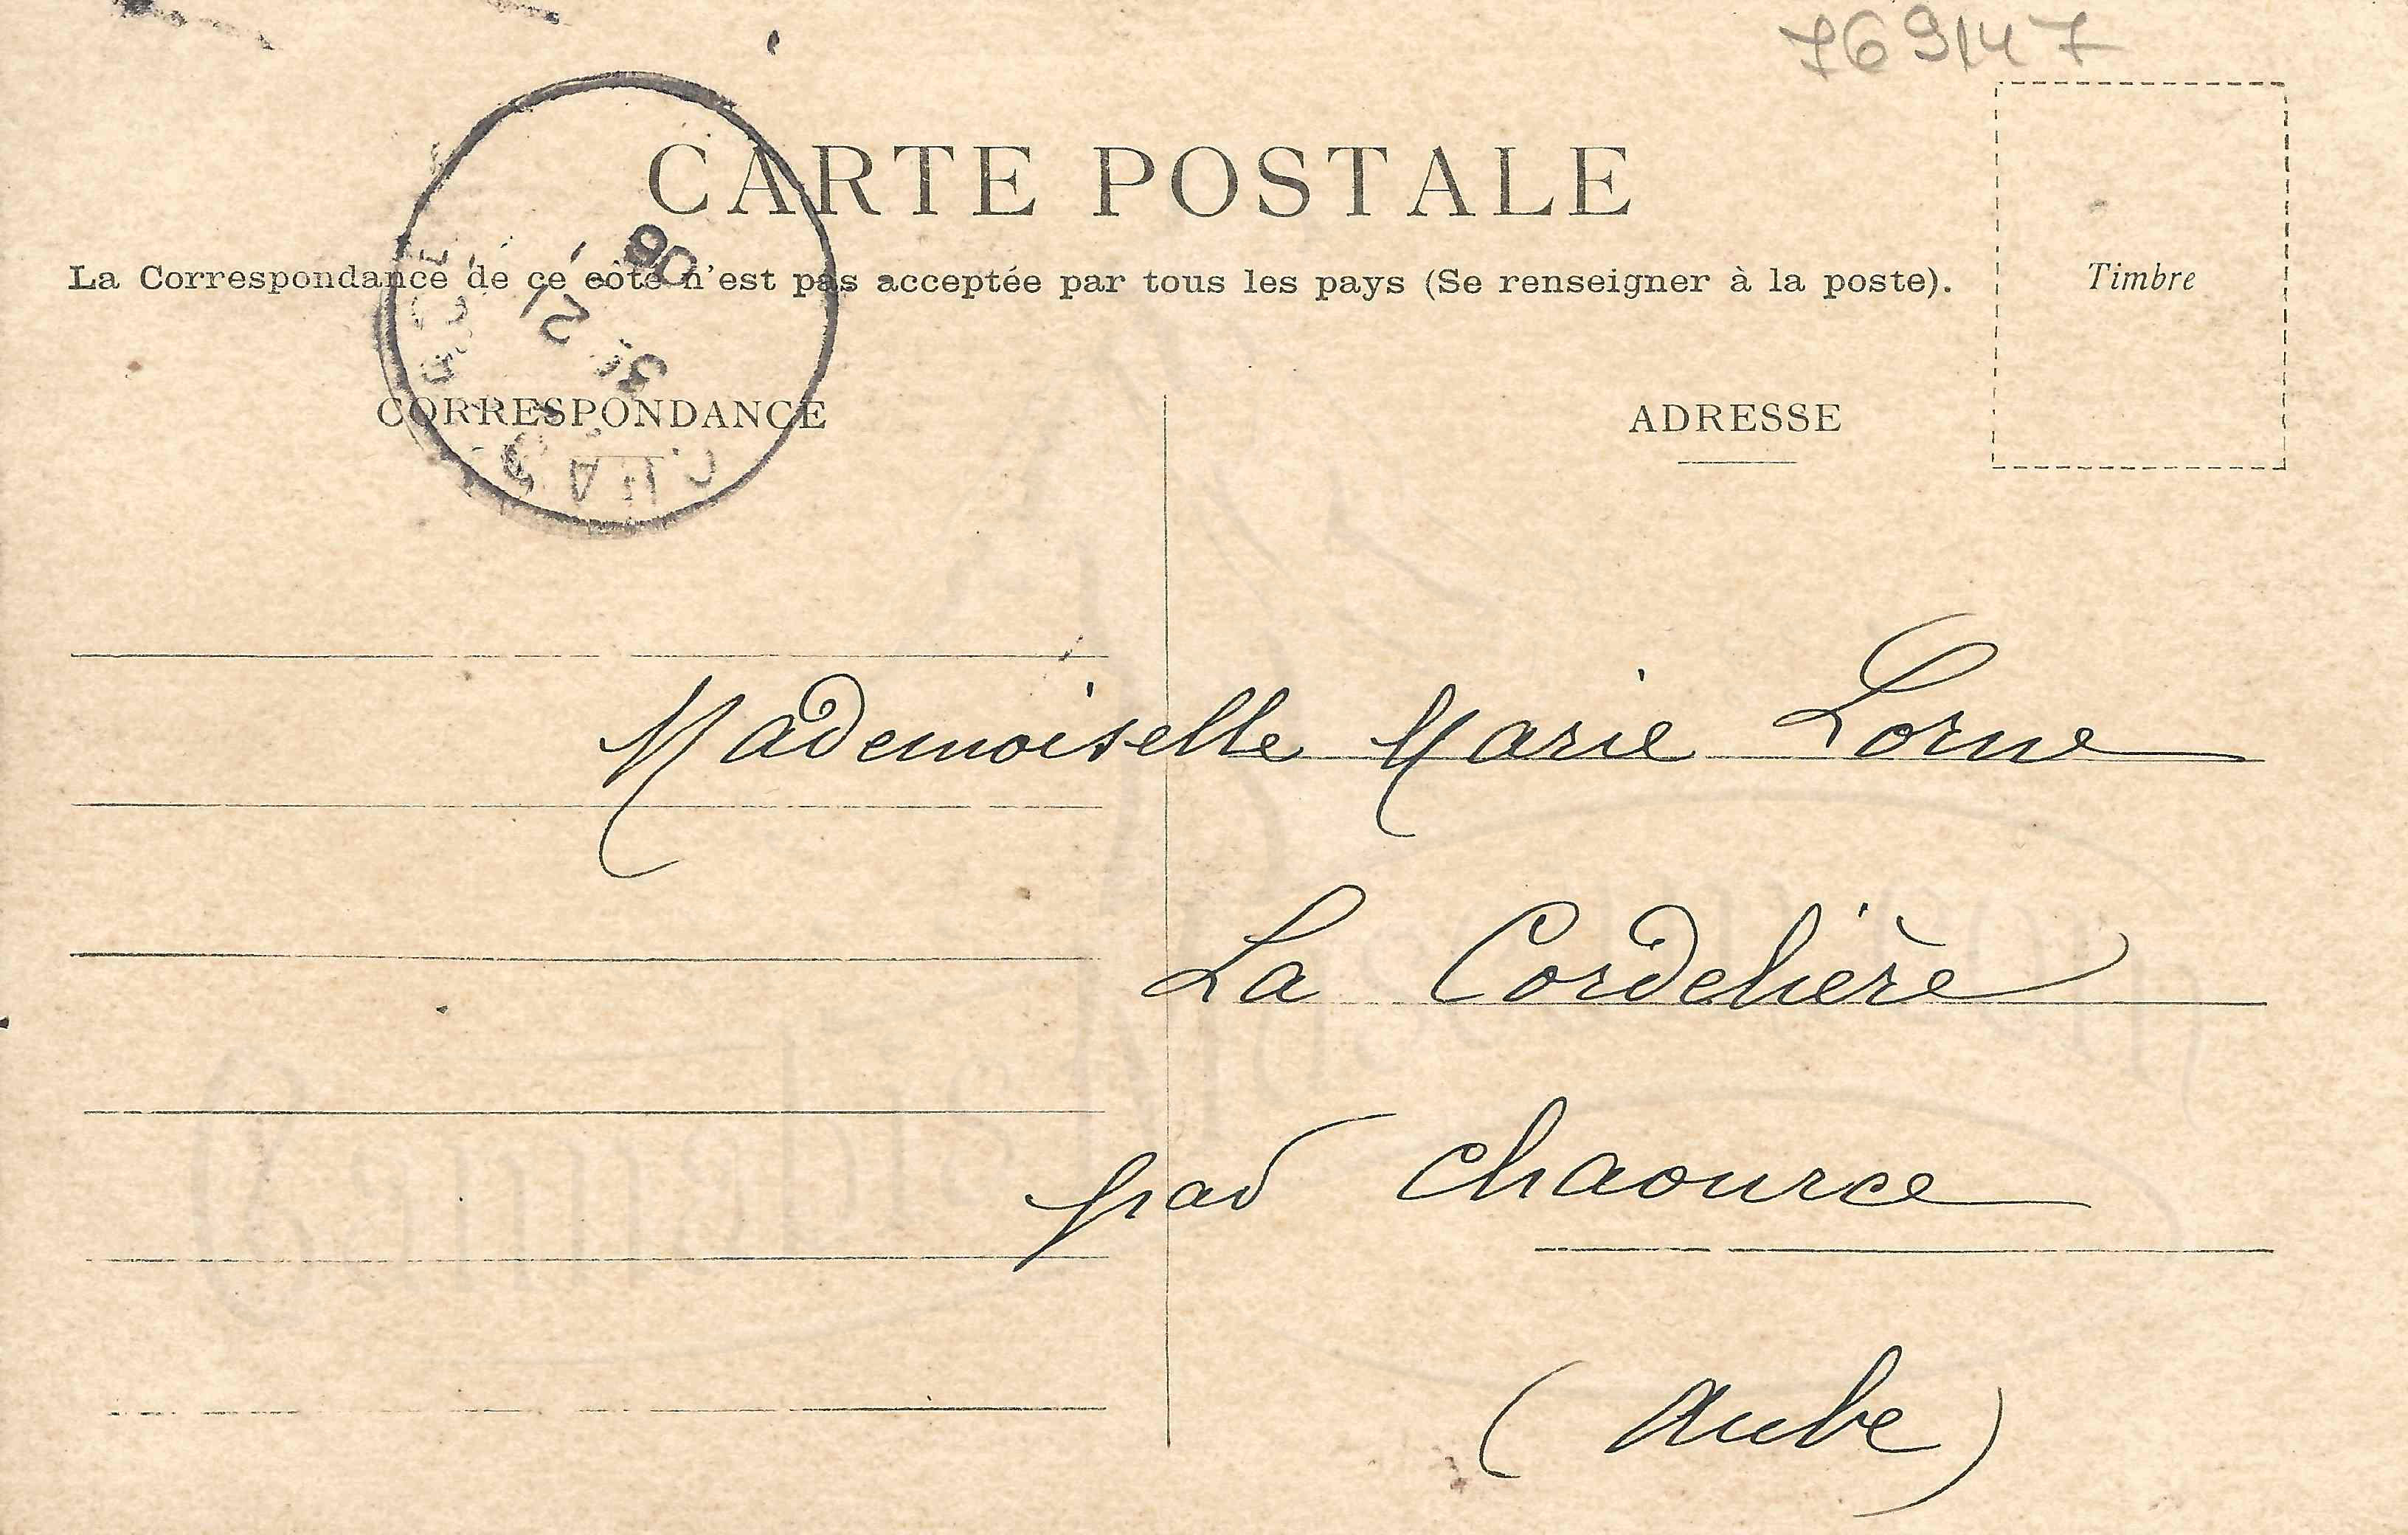 769147
CARTE POSTALE
La Correspondance de ce côté n'est pas acceptée par tous les pays (Se renseigner à la poste).
Timbre
CORRESPONDANCE
ADRESSE
Mademoiselle Marie Lorne
La Cordelière
par Chaource
(Aube)